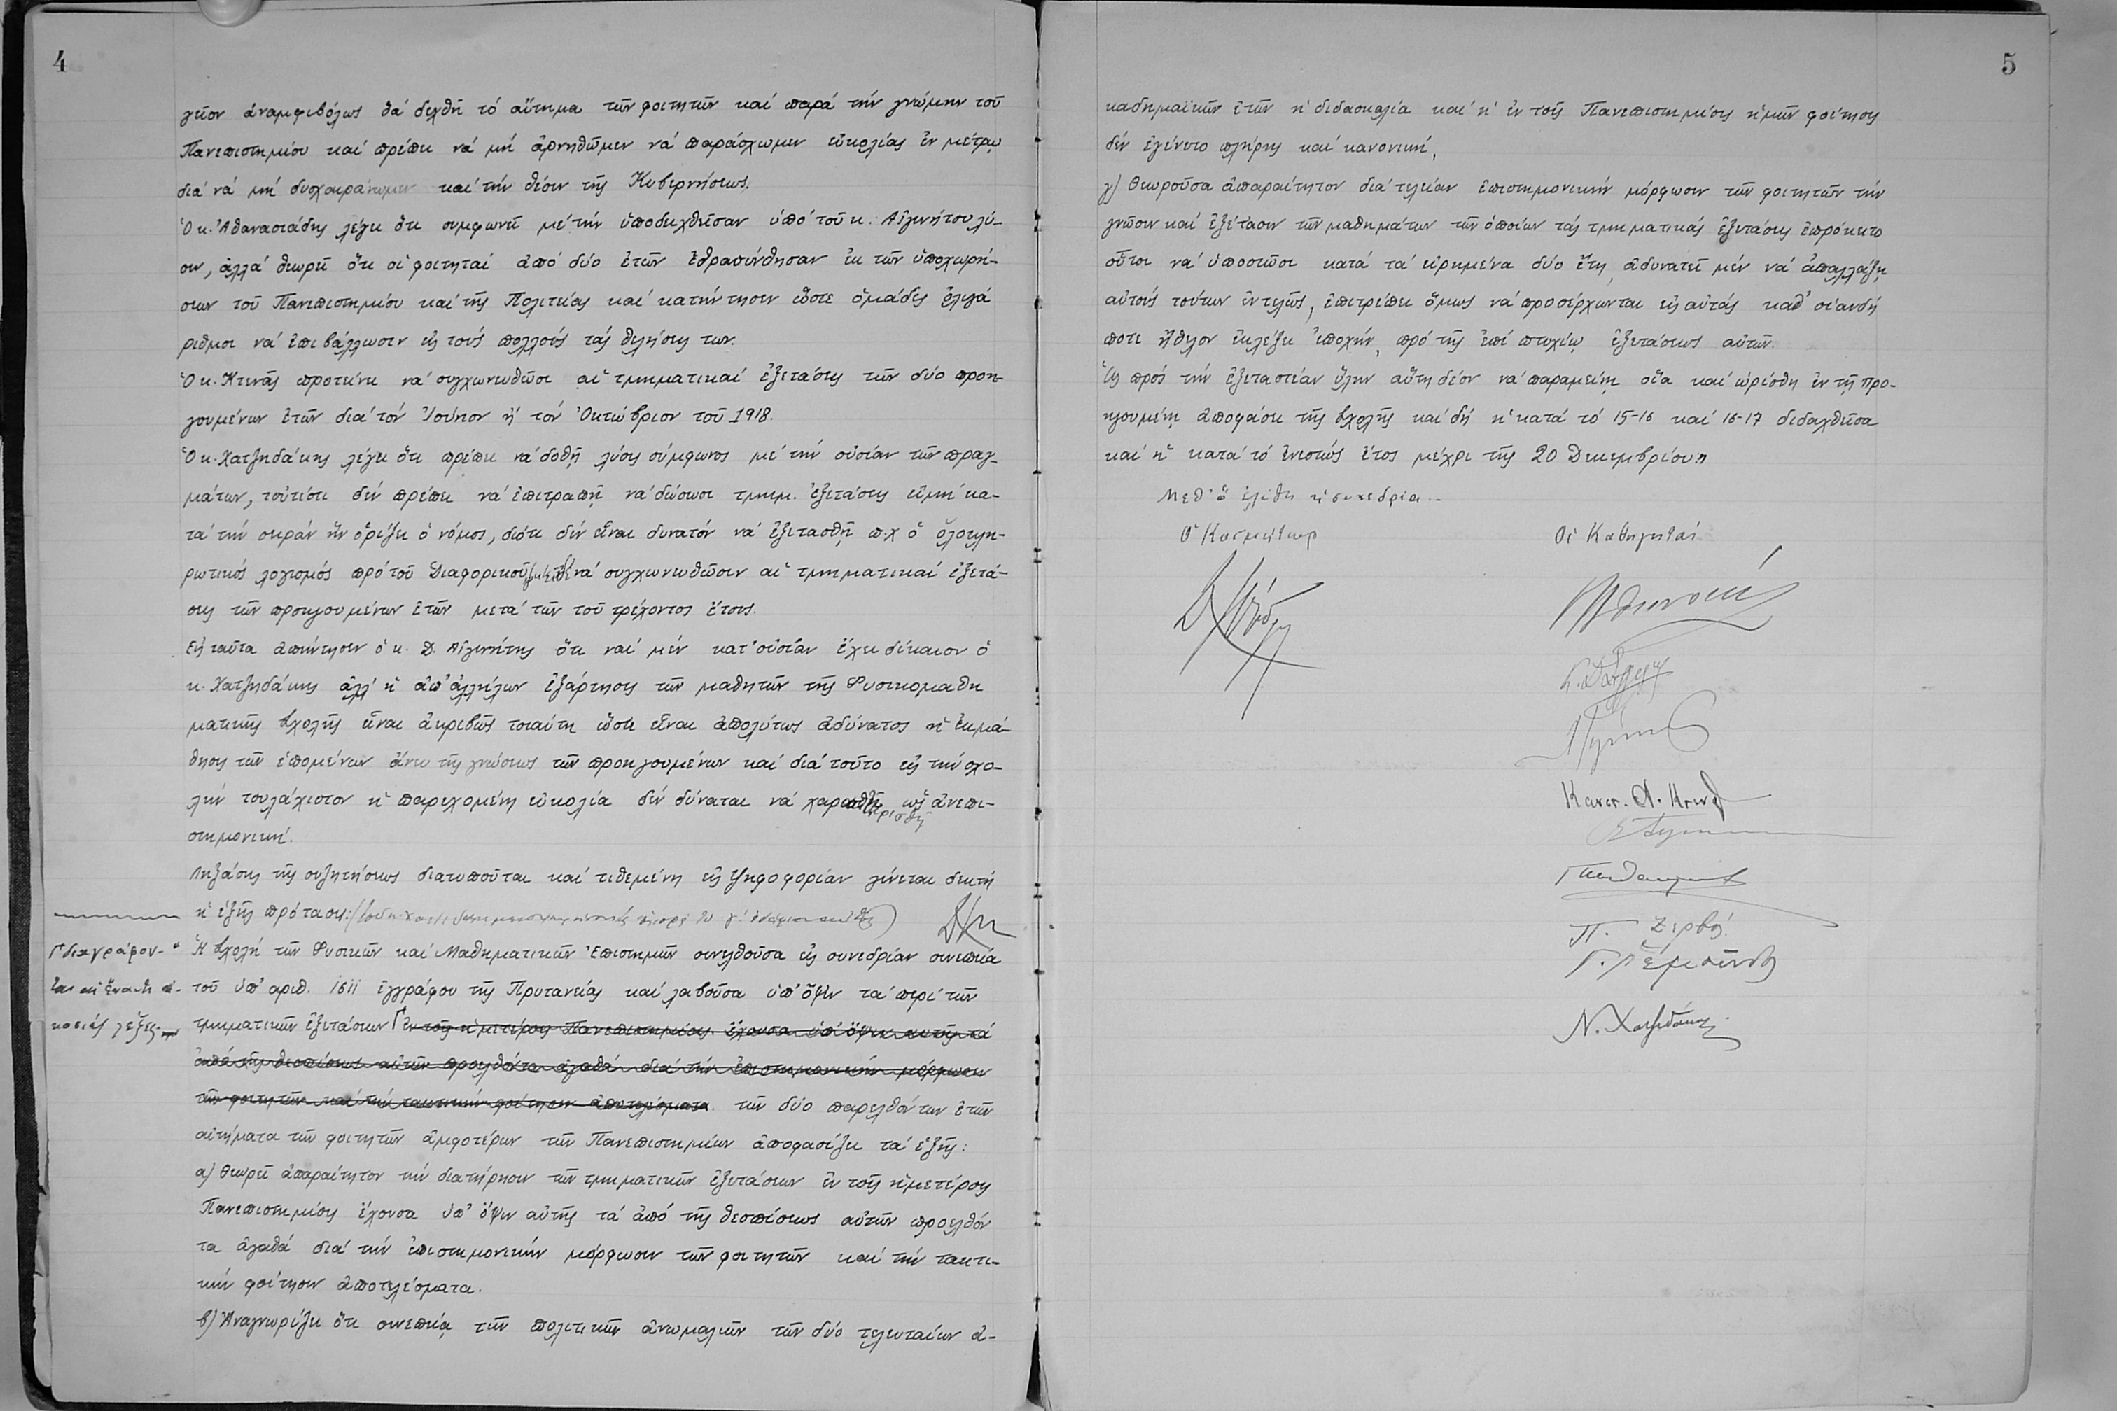 4
γεῖον ἀναμφιβόλως θά δεχθῆ τό αἴτημα τῶν φοιτητῶν καί παρά τήν γνώμην τοῦ
Πανεπιστημίου καί πρέπει νά μή ἀρνηθῶμεν νά παράσχωμεν εὐκολίας ἐν μέτρῳ
διά νά μή δυσχεράνωμεν καί τήν θέσιν τῆς Κυβερνήσεως.
Ὁ κ. Ἀθανασιάδης λέγει ὅτι συμφωνεῖ μέ τήν ὑποδειχθεῖσαν ὑπό τοῦ κ. Αἰγινήτου λύ-
σιν, ἀλλά θεωρεῖ ὅτι οἱ φοιτηταί ἀπό δύο ἐτῶν ἐθρασύνθησαν ἐκ τῶν ὑποχωρή-
σεων τοῦ Πανεπιστημίου καί τῆς Πολιτείας καί κατήντησεν ὥστε ὁμάδες ὀλιγά
ριθμοι νά ἐπιβάλλωσιν εἰς τούς πολλούς τάς θελήσεις των.
Ὁ κ. Κτενᾶς προτείνει νά συγχωνευθῶσι αἱ τμηματικαί ἐξετάσεις τῶν δύο προη-
γουμένων ἐτῶν διά τόν Ἰούνιον ἤ τόν Ὀκτώβριον τοῦ 1918.
Ὁ κ. Χατζηδάκης λέγει ὅτι πρέπει νά δοθῆ λύσις σύμφωνος μέ τήν οὐσίαν τῶν πραγ-
μάτων, τουτέστι δέν πρέπει νά ἐπιτραπῆ νά δώσωσι τμημ. ἐξετάσεις εἰμή κα-
τά τήν σειράν ἥν ὁρίζει ὁ νόμος, διότι δέν εἶναι δυνατόν νά ἐξετασθῆ π.χ ὁ ὁλοκλη-
ρωτικός λογισμός πρό τοῦ Διαφορικοῦ νά συγχωνευθῶσιν αἱ τμηματικαί ἐξετά-
σεις τῶν προηγουμένων ἐτῶν μετά τῶν τοῦ τρέχοντος ἔτους.
Εἰς ταῦτα ἀπήντησεν ὁ κ. Δ. Αἰγινήτης ὅτι ναί μέν κατ' οὐσίαν ἔχει δίκαιον ὁ
κ. Χατζηδάκης ἀλλ' ἡ ἀπ' ἀλλήλων ἐξάρτησις τῶν μαθητῶν τῆς Φυσικομαθη
ματικῆς Σχολῆς εἶναι ἀκριβῶς τοιαύτη ὥστε εἶναι ἀπολύτως ἀδύνατος ἡ ἐκμά-
θησις τῶν ἑπομένων ἄνευ τῆς γνώσεως τῶν προηγουμένων καί διά τοῦτο εἰς τήν σχο-
λήν τουλάχιστον ἡ παρεχομένη εὐκολία δέν δύναται νά χαρακτηρισθῆ ὡς ἀνεπι-
στημονική.
Ληξάσης τῆς συζητήσεως διατυποῦται καί τιθεμένη εἰς ψηφοφορίαν γίνεται δεκτή
ἡ ἑξῆς πρότασις:
Ἡ Σχολή τῶν Φυσικῶν καί Μαθηματικῶν Ἐπιστημῶν συνελθοῦσα εἰς συνεδρίαν συνεπείᾳ
Γ διαγράφον-
τοῦ ὑπ' ἀριθ. 1611 ἐγγράφου τῆς Πρυτανείας καί λαβοῦσα ὑπ' ὄψιν τά περί τῶν
ται αἱ ἕνδεκα εἰ-
τμηματικῶν ἐξετάσεων Γ ἐν τοῖς ἡμετέροις Πανεπιστημίοις ἔχουσα ὑπ' ὄψιν αὐτῆς τά
κοσιές λέξεις
ἀπό τῆς θεσπίσεως αὐτῶν προελθόντα ἀγαθά διά τήν ἐπιστημονικήν μόρφωσιν
τῶν φοιτητῶν καί τήν τακτικήν φοίτησιν ἀποτελέσματα τῶν δύο παρελθόντων ἐτῶν
αἰτήματα τῶν φοιτητῶν ἀμφοτέρων τῶν Πανεπιστημίων ἀποφασίζει τά ἑξῆς:
α) Θεωρεῖ ἀπαραίτητον τήν διατήρησιν τῶν τμηματικῶν ἐξετάσεων ἐν τοῖς ἡμετέροις
Πανεπιστημίοις ἔχουσα ὑπ' ὄψιν αὐτῆς τά ἀπό τῆς θεσπίσεως αὐτῶν προελθόν
τα ἀγαθά διά τήν ἐπιστημονικήν μόρφωσιν τῶν φοιτητῶν καί τήν τακτι-
κήν φοίτησιν ἀποτελέσματα.
β) Ἀναγνωρίζει ὅτι συνεπείᾳ τῶν πολιτικῶν ἀνωμαλιῶν τῶν δύο τελευταίων ἀ-
5
καδημαϊκῶν ἐτῶν ἡ διδασκαλία καί ἡ ἐν τοῖς Πανεπιστημίοις ἡμῶν φοίτησις
δέν ἐγένετο πλήρης καί κανονική,
γ) Θεωροῦσα ἀπαραίτητον διά τελείαν ἐπιστημονικήν μόρφωσιν τῶν φοιτητῶν τήν
γνῶσιν καί ἐξέτασιν τῶν μαθημάτων τῶν ὁποίων τάς τμηματικάς ἐξετάσεις ἐπρόκειτο
οὗτοι νά ὑποστῶσι κατά τά εἰρημένα δύο ἔτη, ἀδυνατεῖ μέν νά ἀπαλλάξῃ
αὐτούς τούτων ἐντελῶς, ἐπιτρέπει ὅμως νά προσέρχωνται εἰς αὐτάς καθ' οἱανδή
ποτε ἤθελον ἐκλέξει ἐποχήν, πρό τῆς ἐπί πτυχίῳ ἐξετάσεως αὐτῶν.
Ὡς πρός τήν ἐξεταστέαν ὕλην αὕτη δέον νά παραμείνῃ οἵα καί ὡρίσθη ἐν τῇ προ-
ηγουμένῃ ἀποφάσει τῆς Σχολῆς καί δή ἡ κατά τό 15-16 καί 16-17 διδαχθεῖσα
καί ἡ κατά τό ἐνεστώς ἔτος μέχρι τῆς 20 Δεκεμβρίου"
Μεθ' ὅ ἐλύθη ἡ συνεδρία.
Ὁ Κοσμήτωρ
Οἱ Καθηγηταί
Κωνστ. Α. Κτενᾶς
Π. Ζερβός
Ν. Χατζιδάκης